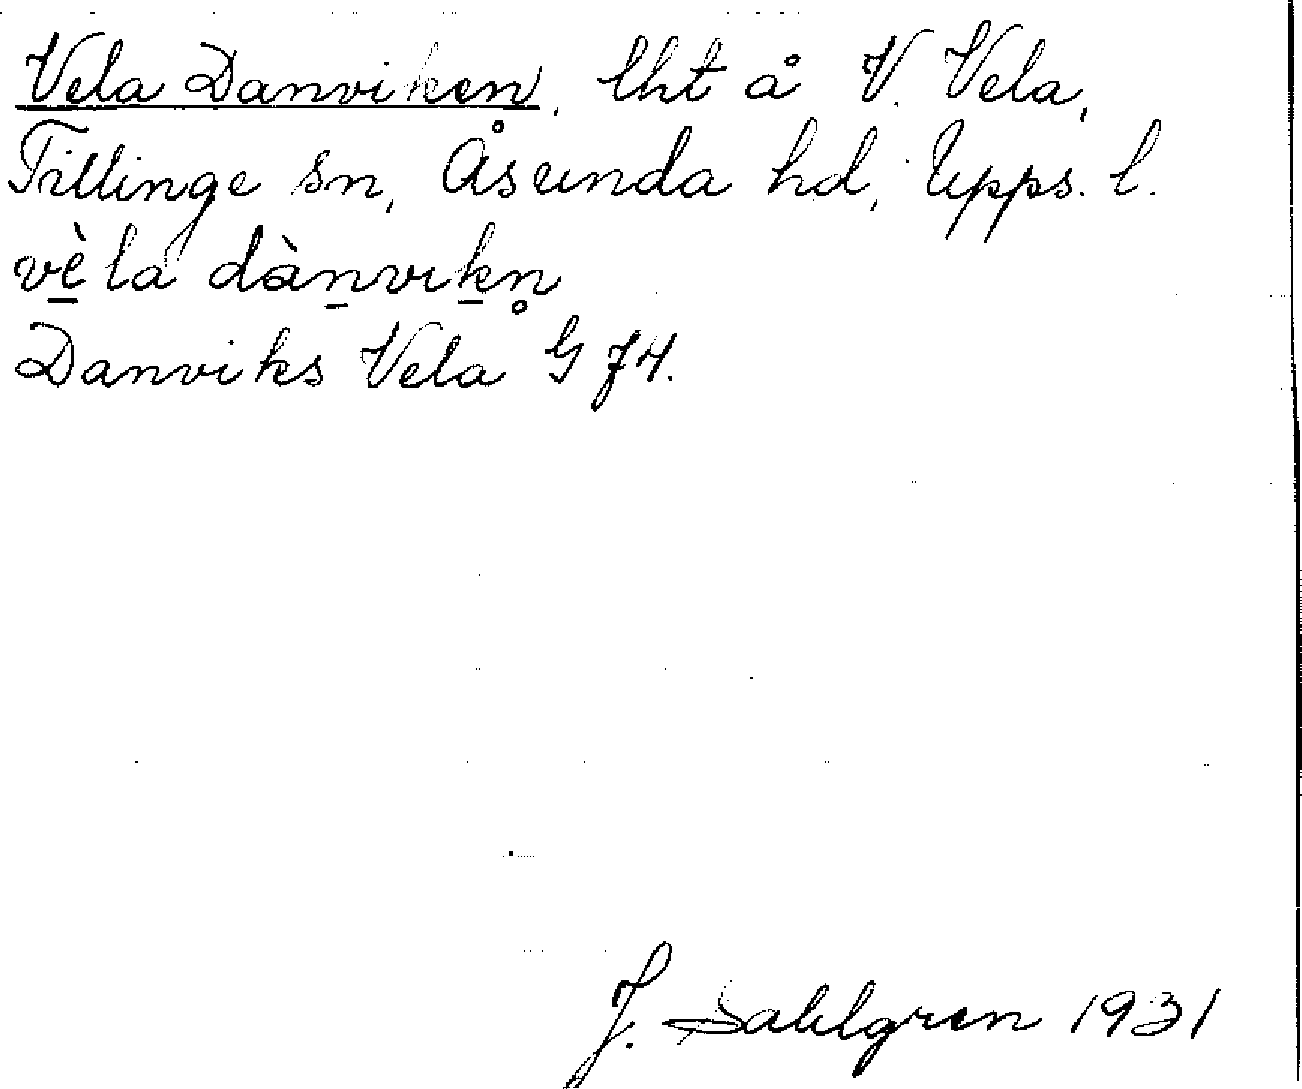 Vela Danviken, lht å V. Vela,
Tillinge sn, Åsunda hd, Upps. l.
vè̱la dàṉviḵn̥
Danviks Vela G 74.
J. Sahlgren 1931